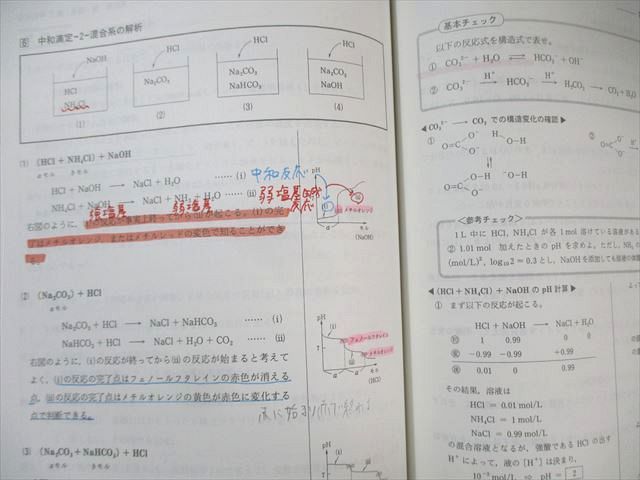 ⑥ 中和滴定-2-混合系の解析
NaOH
HCl
NH₄Cl
(1)
HCl
Na₂CO₃
(2)
HCl
Na₂CO₃
NaHCO₃
(3)
HCl
Na₂CO₃
NaOH
(4)
(1) (HCl + NH₄Cl) + NaOH
HCl + NaOH → NaCl + H₂O …… (i) 中和反応
NH₄Cl + NaOH → NaCl + NH₃ + H₂O …… (ii) 弱塩基
弱塩基
右図のように,
はメチルオレンジ,またはメチルレッドの変色で知ることができ
る。
pH
7
(i)
(ii)
メチルオレンジ
a
(NaOH)
(2) (Na₂CO₃) + HCl
aモル
Na₂CO₃ + HCl → NaCl + NaHCO₃ …… (i)
NaHCO₃ + HCl → NaCl + H₂O + CO₂ …… (ii)
右図のように,(i)の反応が終ってから(ii)の反応が始まると考えて
よく,(i)の反応の完了点はフェノールフタレインの赤色が消える
点,(ii)の反応の完了点はメチルオレンジの黄色が赤色に変化する
点で判断できる。
pH
7
(i)
フェノールフタレイン
(ii)
メチルオレンジ
a
a
(HCl)
(3) (Na₂CO₃ + NaHCO₃) + HCl
aモル bモル
pH
(i)
基本チェック
以下の反応式を構造式で表せ。
① CO₃²⁻ + H₂O ⇌ HCO₃⁻ + OH⁻
② CO₃²⁻ H⁺→ HCO₃⁻ H⁺→ H₂CO₃ → CO₂ + H₂O
◀ CO₃²⁻ → CO₂ での構造変化の確認 ▶
①
②
<参考チェック>
1 L 中に HCl, NH₄Cl が各 1 mol 溶けている溶液がある
② 1.01 mol 加えたときの pH を求めよ。ただし,NH₃
(mol/L)², log₁₀2 = 0.3 とし,NaOH を添加しても溶液の体積
◀ (HCl + NH₄Cl) + NaOH の pH 計算 ▶
① まず以下の反応が起こる。
HCl + NaOH → NaCl + H₂O
前 1 0.99 0 0
変 -0.99 -0.99 +0.99
後 0.01 0 0.99
その結果,溶液は
HCl = 0.01 mol/L
NH₄Cl = 1 mol/L
NaCl = 0.99 mol/L
の混合溶液となるが,強酸である HCl の出す
H⁺ によって,液の [H⁺] は決まり,
10⁻² mol/L ⇒ pH = 2